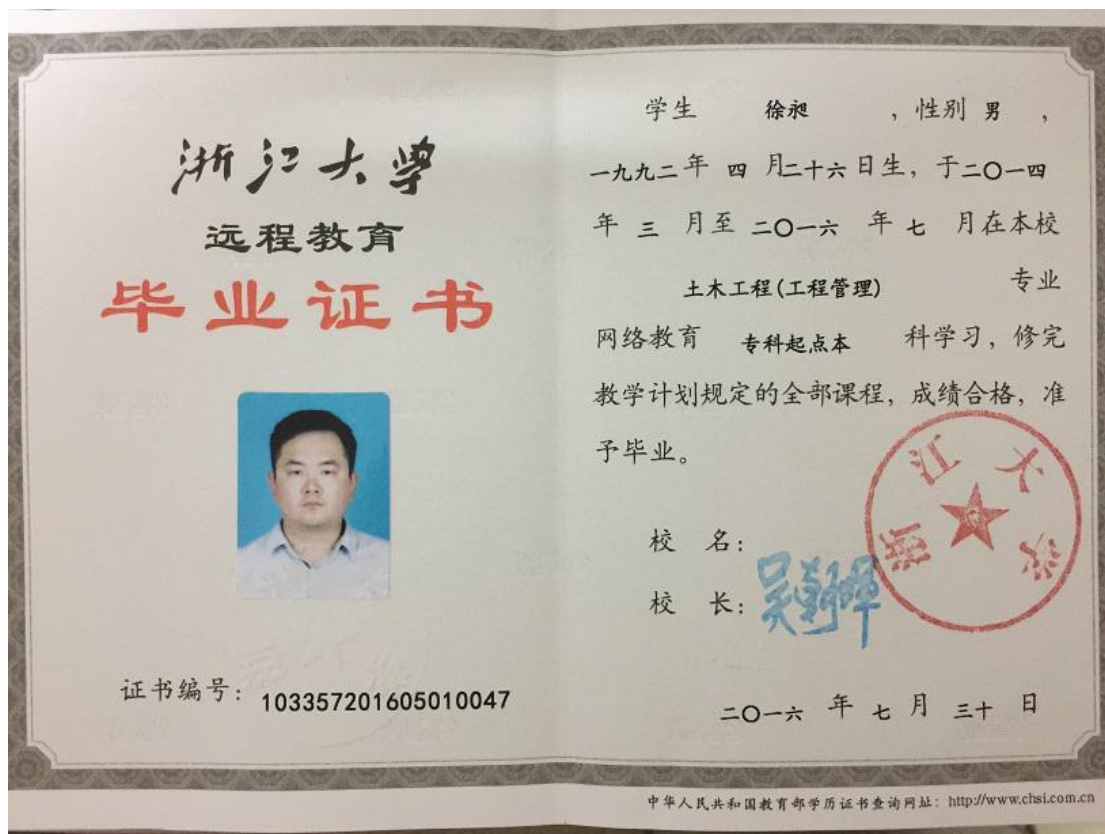 浙江大学
远程教育
毕业证书
证书编号：103357201605010047
学生 徐昶 ，性别 男 ，
一九九二年 四 月二十六日生，于二〇一四
年 三 月至 二〇一六 年 七 月在本校
土木工程(工程管理) 专业
网络教育 专科起点本 科学习，修完
教学计划规定的全部课程，成绩合格，准
予毕业。
校 名：
浙江大学
校 长：
二〇一六 年 七 月 三十 日
中华人民共和国教育部学历证书查询网址：http://www.chsi.com.cn